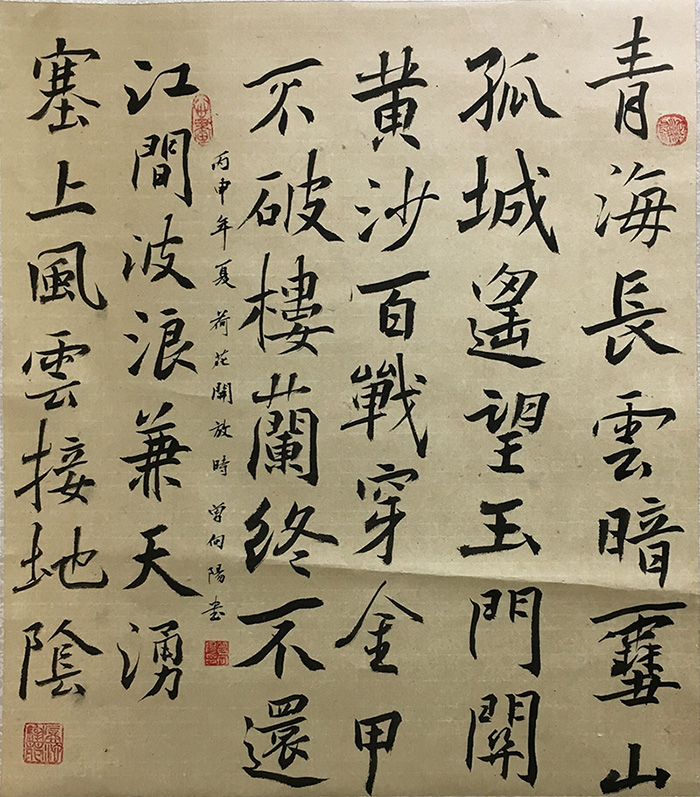 青海長雲暗雪山
孤城遙望玉門関
黄沙百戰穿金甲
不破樓蘭終不還
丙申年夏荷花開放時 曾向陽書
江間波浪兼天湧
塞上風雲接地陰